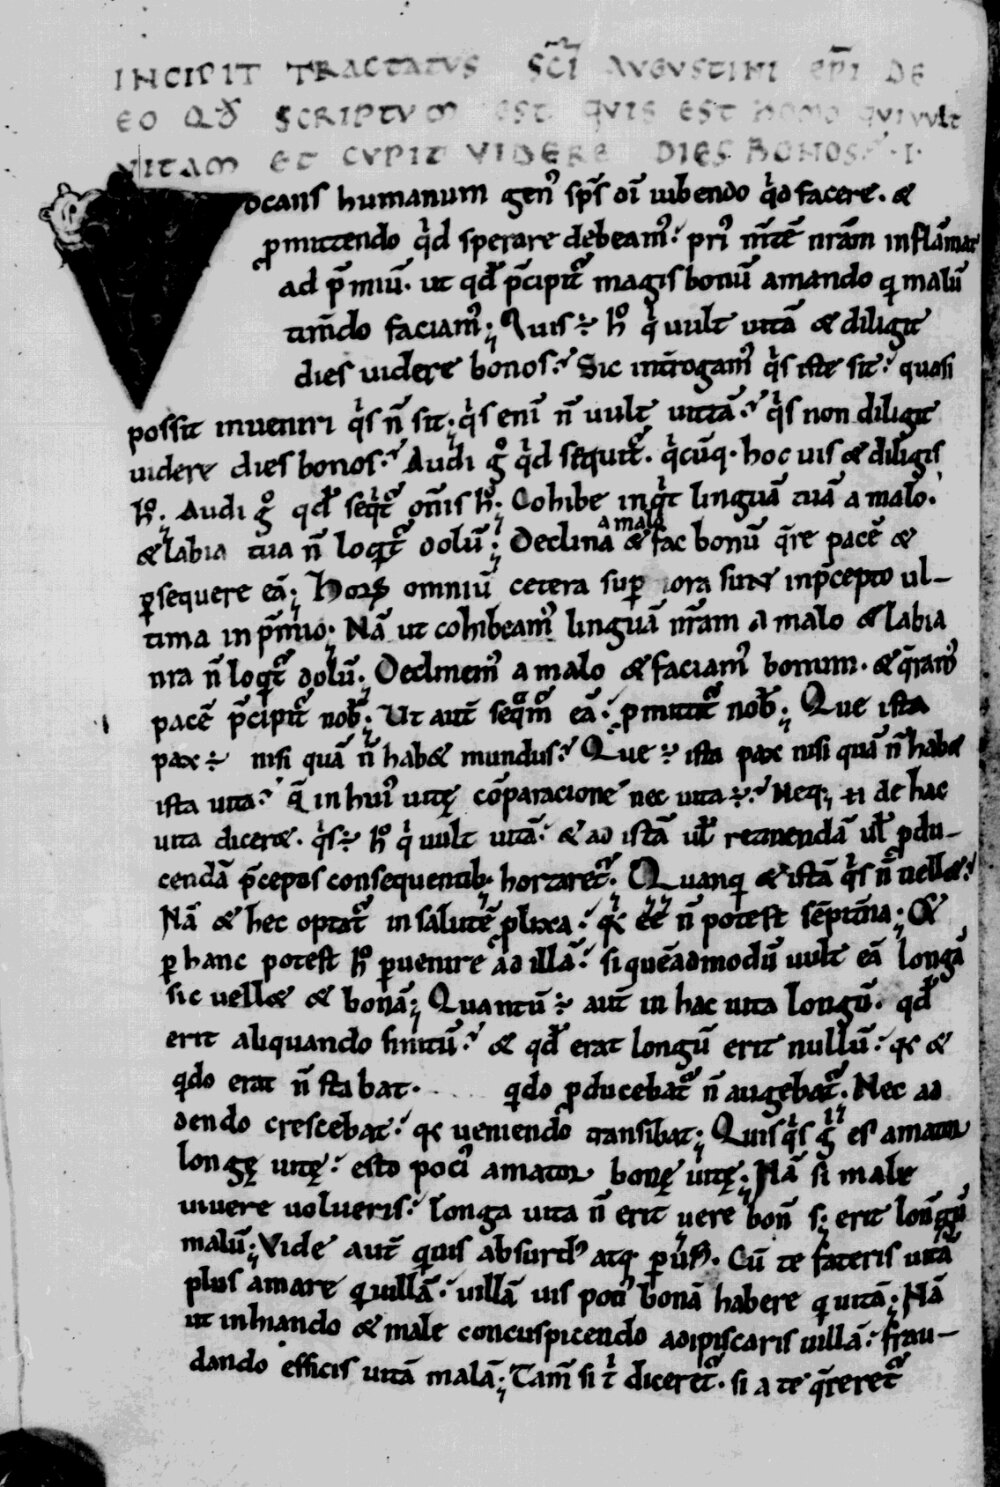 INCIPIT TRACTATUS SC̅I AVGVSTINI EP̅I DE
EO QD̅ SCRIPTVM EST QVIS EST HOMO QVI VVLT
VITAM ET CVPIT VIDERE DIES BONOS. I.
Vocans humanum genꝰ sp̅s d̅i iubendo qͥd facere. &
ꝓmittendo qͥd sperare debeamꝰ. pri m̅te̅ nr̅am infla̅mat
ad p̅miu̅. ut qd̅ p̅cipit᷑ magis bonu̅ amando q̄ malu̅
tim̅do faciamꝰ; Quis ÷ h̊ qͥ uult uita̅ & diligit
dies uidere bonos? Sic int̅rogamꝰ qͥs iste sit? quasi
possit inueniri qͥs n̅ sit; qͥs eni̅ n̅ uult uita̅? qͥs non diligit
uidere dies bonos? Audi g̊ qͥd seq̅uit᷑. qͥcu̅q. hoc uis & diligis
h̊; Audi g̊ qd̅ seqͥt᷑ om̅is h̊; Cohibe inqͥt lingua̅ tua̅ a malo.
& labia tua n̅ loqͣt᷑ dolu̅; Declina a malo & fac bonu̅ q̅re pace̅ &
ꝑsequere ea̅; Hoꝝ omniu̅ cetera sup iora sunt in p̅cepto ul-
tima in p̅mio; Na̅ ut cohibeamꝰ lingua̅ nr̅am a malo & labia
nra n̅ loqͣt᷑ dolu̅; Declinemꝰ a malo & faciamꝰ bonum. & q̅ramꝰ
pace̅ p̅cipit᷑ nob̅; Ut aut̅ seqͣm᷑ ea̅? ꝓmittit᷑ nob̅; Que ista
pax ÷ nisi qua̅ n̅ hab& mundus? Que ÷ ista pax nisi qua̅ n̅ hab&
ista uita? q̅ in huiꝰ uitę co̅paracione nec uita ÷? Neq; n̅ de hac
uita diceret. qͥs ÷ h̊ qͥ uult uita̅? & ad ista̅ ul̅ retinenda̅ ul̅ ꝓdu-
cenda̅ p̅ceptis consequentib; hortaret᷑. Quanq̄ & ista̅ qͥs n̅ nell&?
Na̅ & hec optat᷑ in salute̅ ꝓlixa? q̅ ee̅ n̅ potest se̅pit̅na; Et
ꝑ hanc potest h̊ ꝑuenire ad illa̅? si que̅admodu̅ uult ea̅ longa̅
sic uell& & bona̅; Quantu̅ ÷ aut̅ in hac uita longu̅. qd̅
erit aliquando finitu̅? & qd̅ erat longu̅ erit nullu̅? q̅ &
qͣdo erat n̅ stabat. qͣdo ꝓducebat᷑ n̅ augebat᷑. Nec ad
dendo crescebat? q̅ ueniendo transibat; Quisqͥs g̊ es amator
longę uitę? esto pociꝰ amator bonę uitę; Na̅ si male
uiuere uolueris? longa uita n̅ erit uere bon̅ s; erit longu̅
malu̅; Vide aut̅ qua̅ absurdꝰ atq; ꝑuers. Cu̅ te fateris uita̅
plus amare q̄ uilla̅? uilla̅ uis pociꝰ bona̅ habere q̄ uita̅; Na̅
ut inhiando & male concupiscendo adipiscaris uilla̅? frau-
dando efficis uita̅ mala̅; Tam̅ si tͥ diceret᷑. si a te q̅reret᷑